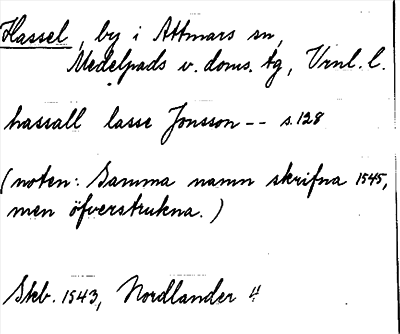 Hassel, by i Attmars sn,
Medelpads v. doms. tg, Vrnl. l.
hassall lasse Jonsson -- s. 128
(noten: Samma namn skrifna 1545,
men öfverstrukna.)
Skb. 1543, Nordlander